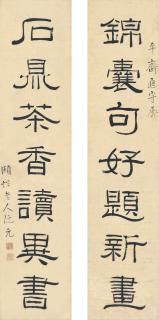 錦囊句好題新畫
石鼎茶香讀異書
頤性老人阮元